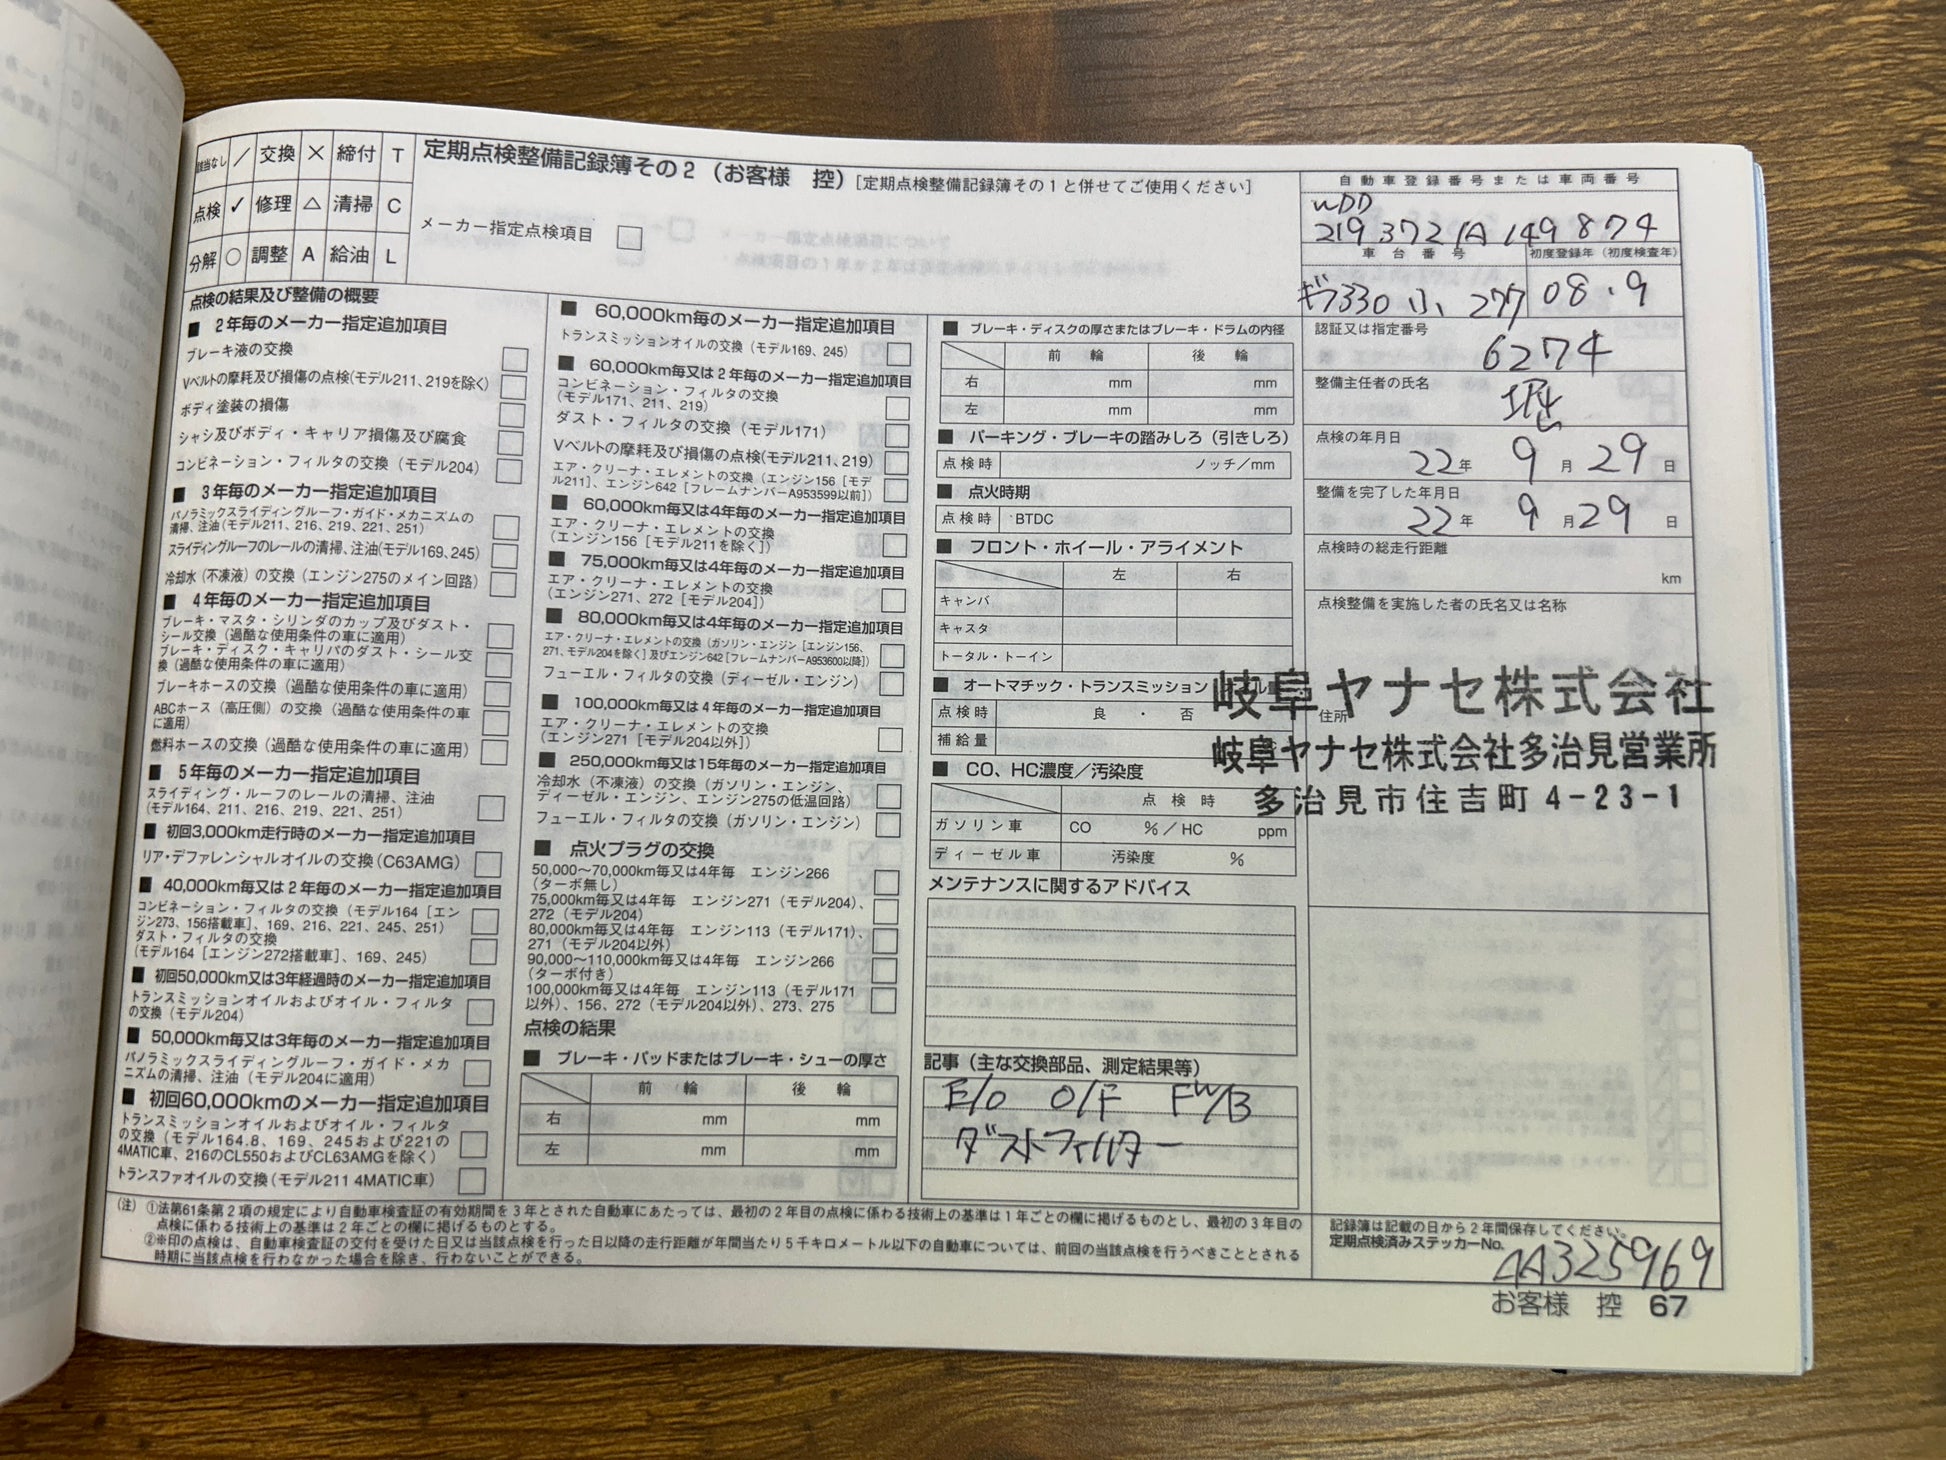 該当なし ／ 交換 × 締付 T
点検 ✓ 修理 △ 清掃 C
分解 ○ 調整 A 給油 L
定期点検整備記録簿その2（お客様 控）[定期点検整備記録簿その1と併せてご使用ください]
メーカー指定点検項目
点検の結果及び整備の概要
■ 2年毎のメーカー指定追加項目
ブレーキ液の交換
Vベルトの摩耗及び損傷の点検(モデル211、219を除く)
ボディ塗装の損傷
シャシ及びボディ・キャリア損傷及び腐食
コンビネーション・フィルタの交換（モデル204）
■ 3年毎のメーカー指定追加項目
パノラミックスライディングルーフ・ガイド・メカニズムの
清掃、注油(モデル211、216、219、221、251)
スライディングルーフのレールの清掃、注油(モデル169、245)
冷却水（不凍液）の交換（エンジン275のメイン回路）
■ 4年毎のメーカー指定追加項目
ブレーキ・マスタ・シリンダのカップ及びダスト・
シール交換（過酷な使用条件の車に適用）
ブレーキ・ディスク・キャリパのダスト・シール交
換（過酷な使用条件の車に適用）
ブレーキホースの交換（過酷な使用条件の車に適用）
ABCホース（高圧側）の交換（過酷な使用条件の車
に適用）
燃料ホースの交換（過酷な使用条件の車に適用）
■ 5年毎のメーカー指定追加項目
スライディング・ルーフのレールの清掃、注油
(モデル164、211、216、219、221、251)
■ 初回3,000km走行時のメーカー指定追加項目
リア・デファレンシャルオイルの交換(C63AMG)
■ 40,000km毎又は2年毎のメーカー指定追加項目
コンビネーション・フィルタの交換（モデル164［エン
ジン273、156搭載車］、169、216、221、245、251）
ダスト・フィルタの交換
(モデル164［エンジン272搭載車］、169、245)
■ 初回50,000km又は3年経過時のメーカー指定追加項目
トランスミッションオイルおよびオイル・フィルタ
の交換（モデル204）
■ 50,000km毎又は3年毎のメーカー指定追加項目
パノラミックスライディングルーフ・ガイド・メカ
ニズムの清掃、注油（モデル204に適用）
■ 初回60,000kmのメーカー指定追加項目
トランスミッションオイルおよびオイル・フィルタ
の交換（モデル164.8、169、245および221の
4MATIC車、216のCL550およびCL63AMGを除く）
トランスファオイルの交換（モデル211 4MATIC車）
■ 60,000km毎のメーカー指定追加項目
トランスミッションオイルの交換（モデル169、245）
■ 60,000km毎又は2年毎のメーカー指定追加項目
コンビネーション・フィルタの交換
（モデル171、211、219）
ダスト・フィルタの交換（モデル171）
Vベルトの摩耗及び損傷の点検(モデル211、219)
エア・クリーナ・エレメントの交換（エンジン156［モデ
ル211］、エンジン642［フレームナンバーA953599以前］）
■ 60,000km毎又は4年毎のメーカー指定追加項目
エア・クリーナ・エレメントの交換
（エンジン156［モデル211を除く］）
■ 75,000km毎又は4年毎のメーカー指定追加項目
エア・クリーナ・エレメントの交換
（エンジン271、272［モデル204］）
■ 80,000km毎又は4年毎のメーカー指定追加項目
エア・クリーナ・エレメントの交換（ガソリン・エンジン［エンジン156、
271、モデル204を除く］及びエンジン642［フレームナンバーA953600以降］）
フューエル・フィルタの交換（ディーゼル・エンジン）
■ 100,000km毎又は4年毎のメーカー指定追加項目
エア・クリーナ・エレメントの交換
（エンジン271［モデル204以外］）
■ 250,000km毎又は15年毎のメーカー指定追加項目
冷却水（不凍液）の交換（ガソリン・エンジン、
ディーゼル・エンジン、エンジン275の低温回路）
フューエル・フィルタの交換（ガソリン・エンジン）
■ 点火プラグの交換
50,000～70,000km毎又は4年毎 エンジン266
（ターボ無し）
75,000km毎又は4年毎 エンジン271（モデル204）、
272（モデル204）
80,000km毎又は4年毎 エンジン113（モデル171）、
271（モデル204以外）
90,000～110,000km毎又は4年毎 エンジン266
（ターボ付き）
100,000km毎又は4年毎 エンジン113（モデル171
以外）、156、272（モデル204以外）、273、275
点検の結果
■ ブレーキ・パッドまたはブレーキ・シューの厚さ
前 輪 後 輪
右 mm mm
左 mm mm
■ ブレーキ・ディスクの厚さまたはブレーキ・ドラムの内径
前 輪 後 輪
右 mm mm
左 mm mm
■ パーキング・ブレーキの踏みしろ（引きしろ）
点検時 ノッチ／mm
■ 点火時期
点検時 BTDC
■ フロント・ホイール・アライメント
左 右
キャンバ
キャスタ
トータル・トーイン
■ オートマチック・トランスミッション
点検時 良 ・ 否
補給量
■ CO、HC濃度／汚染度
点検時
ガソリン車 CO %／HC ppm
ディーゼル車 汚染度 %
メンテナンスに関するアドバイス
記事（主な交換部品、測定結果等）
E/O O/F FW/B
ダストフィルター
自動車登録番号または車両番号
WDD
219 372 1A 149874
車台番号 初度登録年（初度検査年）
ギフ330 ふ 277 08.9
認証又は指定番号
6274
整備主任者の氏名
堀
点検の年月日
22年 9月29日
整備を完了した年月日
22年 9月29日
点検時の総走行距離
km
点検整備を実施した者の氏名又は名称
岐阜ヤナセ株式会社
住所
岐阜ヤナセ株式会社多治見営業所
多治見市住吉町4-23-1
(注) ①法第61条第2項の規定により自動車検査証の有効期間を3年とされた自動車にあたっては、最初の2年目の点検に係わる技術上の基準は1年ごとの欄に掲げるものとし、最初の3年目の
点検に係わる技術上の基準は2年ごとの欄に掲げるものとする。
②※印の点検は、自動車検査証の交付を受けた日又は当該点検を行った日以降の走行距離が年間当たり5千キロメートル以下の自動車については、前回の当該点検を行うべきこととされる
時期に当該点検を行わなかった場合を除き、行わないことができる。
記録簿は記載の日から2年間保存してください。
定期点検済みステッカーNo.
AA325969
お客様 控 67